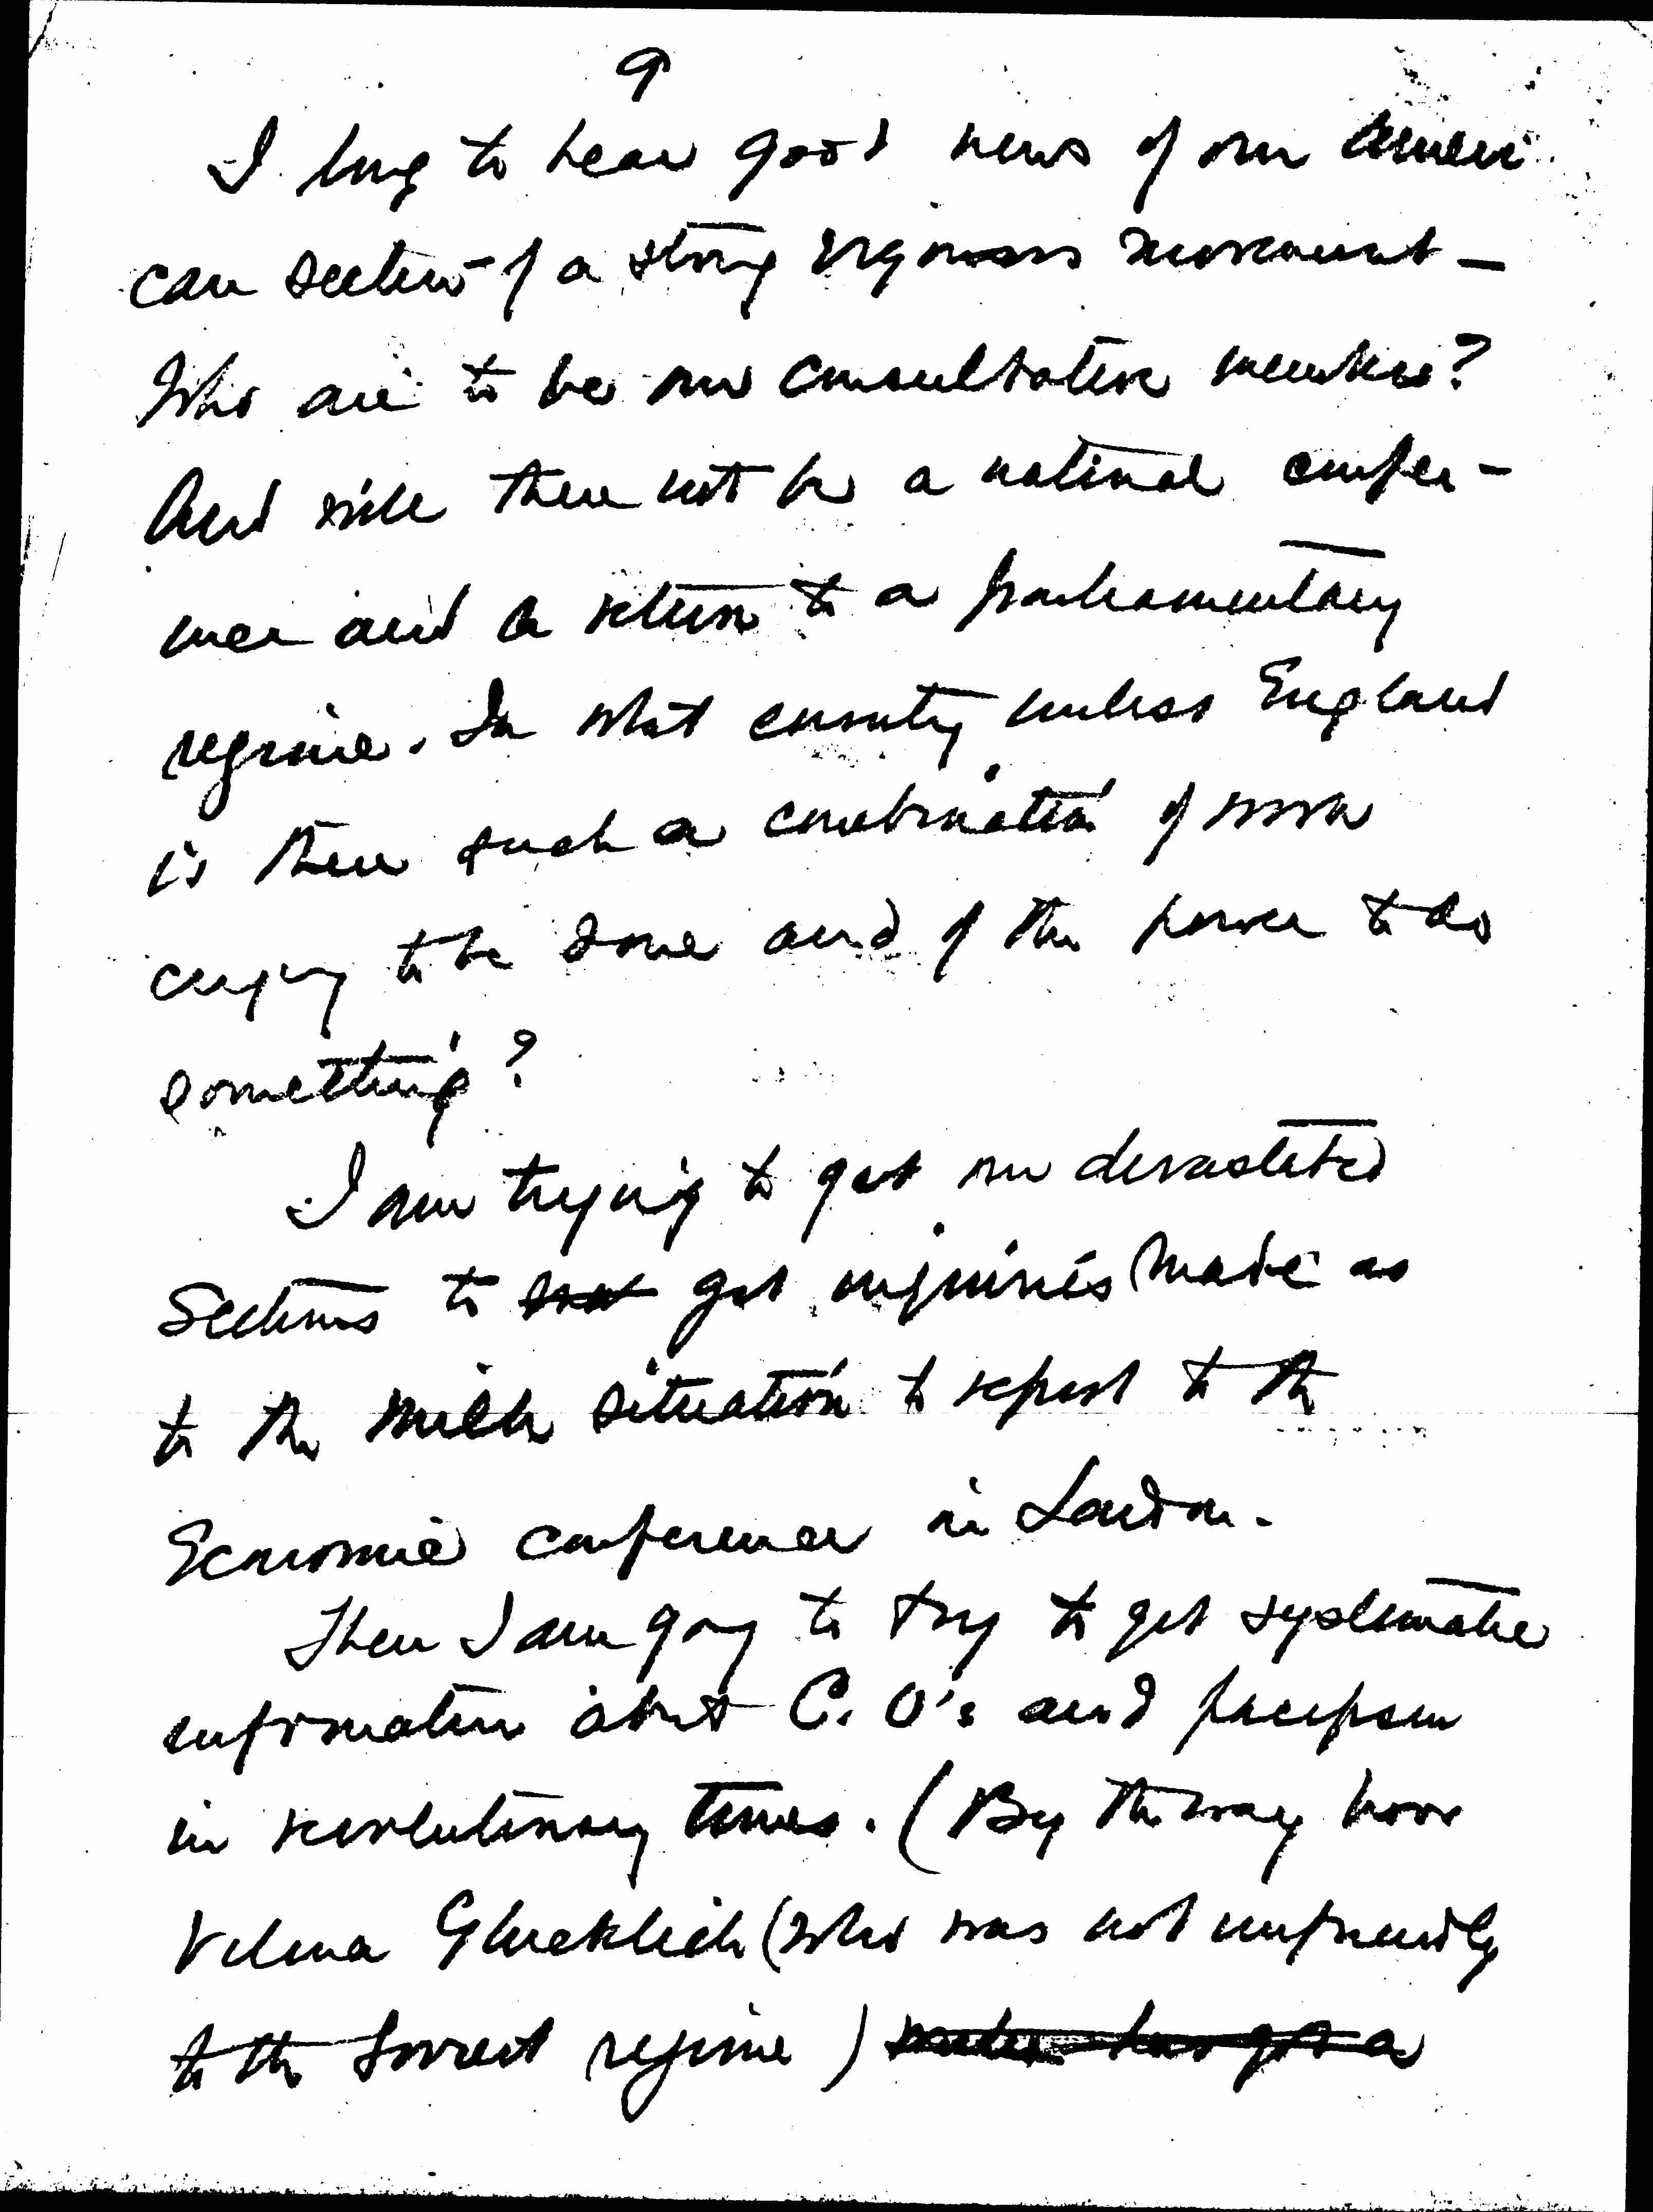 9
I long to hear good news of our Ameri
can section - of a strong vigorous movement —
Who are to be our consultative members?
And will there not be a national confer-
ence and a return to a parliamentary
regime. In what country unless England
is there such a combination of work
crying to be done and of the power to do
something?
I am trying to get our devastated
Sections to get inquiries made as
to the milk situation to report to the
Economic conference in London.
Then I am going to try to get systematic
information about C. O's and pacifism
in revolutionary times. (By the way have
Vilma Glucklich (who was not unfriendly
to the Soviet regime) has got a